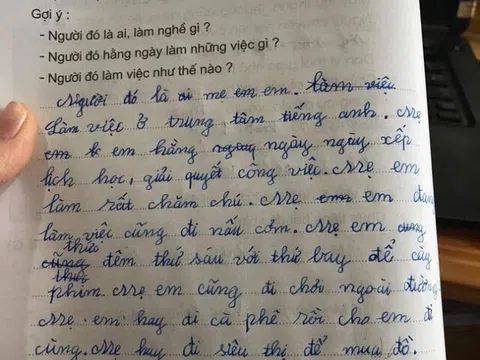 Gợi ý :
- Người đó là ai, làm nghề gì ?
- Người đó hằng ngày làm những việc gì ?
- Người đó làm việc như thế nào ?
Người đó là ai mẹ em em. làm việc
Làm việc ở trung tâm tiếng anh. Mẹ
em k em hằng ngày ngày xếp
lịch học, giải quyết công việc. Mẹ em
làm rất chăm chú. Mẹ em em đan
làm việc cũng đi nấu cơm. Mẹ em cung
thức
cũng đêm thứ sáu với thứ bay để cày
thức
phim. Mẹ em cũng đi chơi ngoài đường
Mẹ em hay đi cà phê rồi cho em đi
cùng. Mẹ hay đi siêu thị để mua đồ.